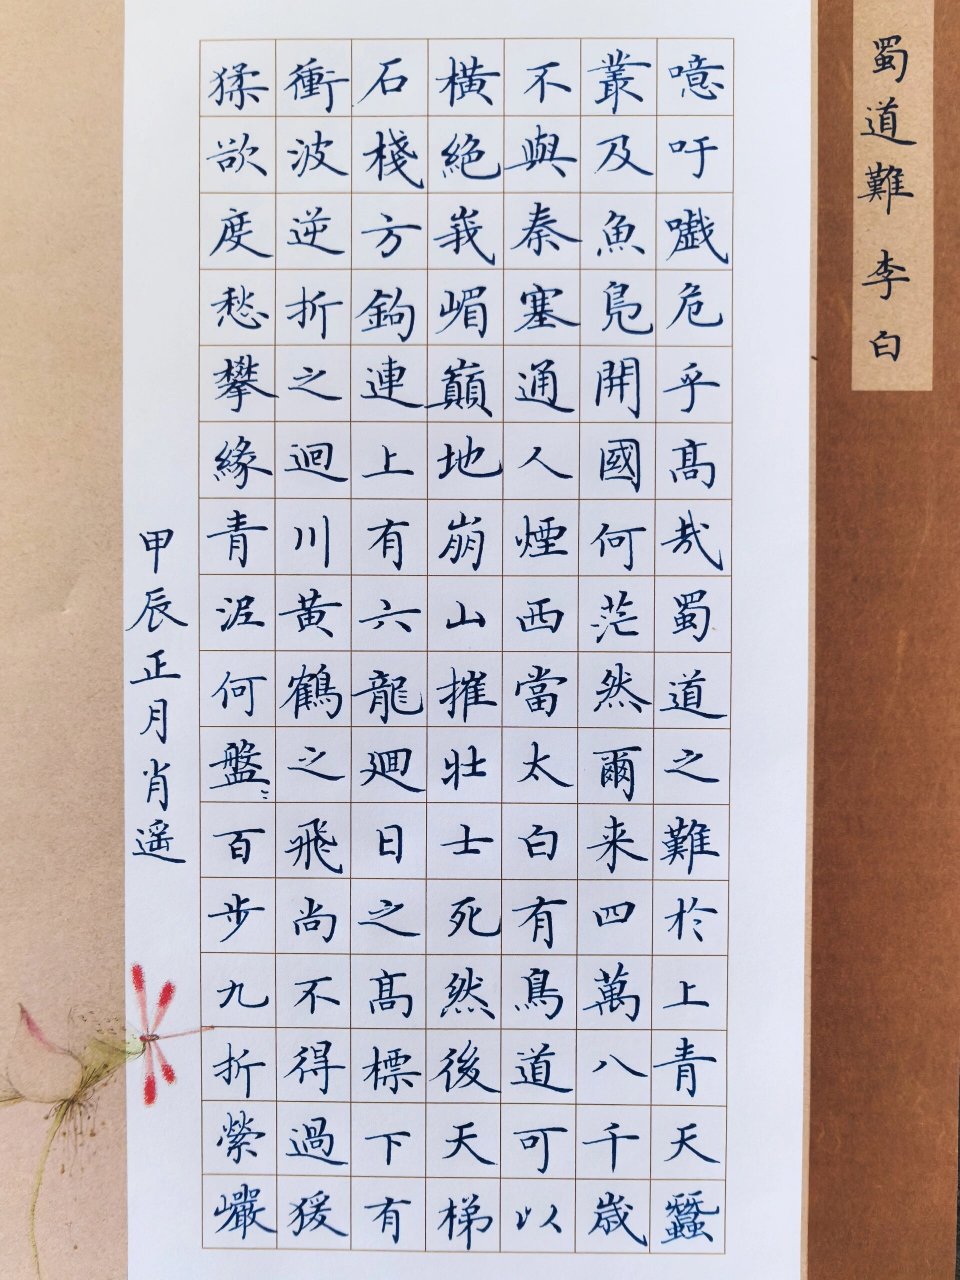 蜀道難 李白
噫吁嚱危乎髙哉蜀道之難於上青天蠶
叢及魚鳧開國何茫然爾来四萬八千歲
不與秦塞通人煙西當太白有鳥道可以
橫絕峩嵋巔地崩山摧壯士死然後天梯
石棧方鉤連上有六龍廻日之髙標下有
衝波逆折之迴川黃鶴之飛尚不得過猨
猱欲度愁攀緣青泥何盤〻百步九折縈巖
甲辰正月肖遥